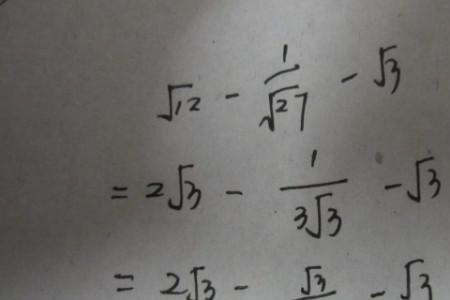 √12 - 1/√27 - √3
= 2√3 - 1/3√3 - √3
= 2√3 - √3/ - √3